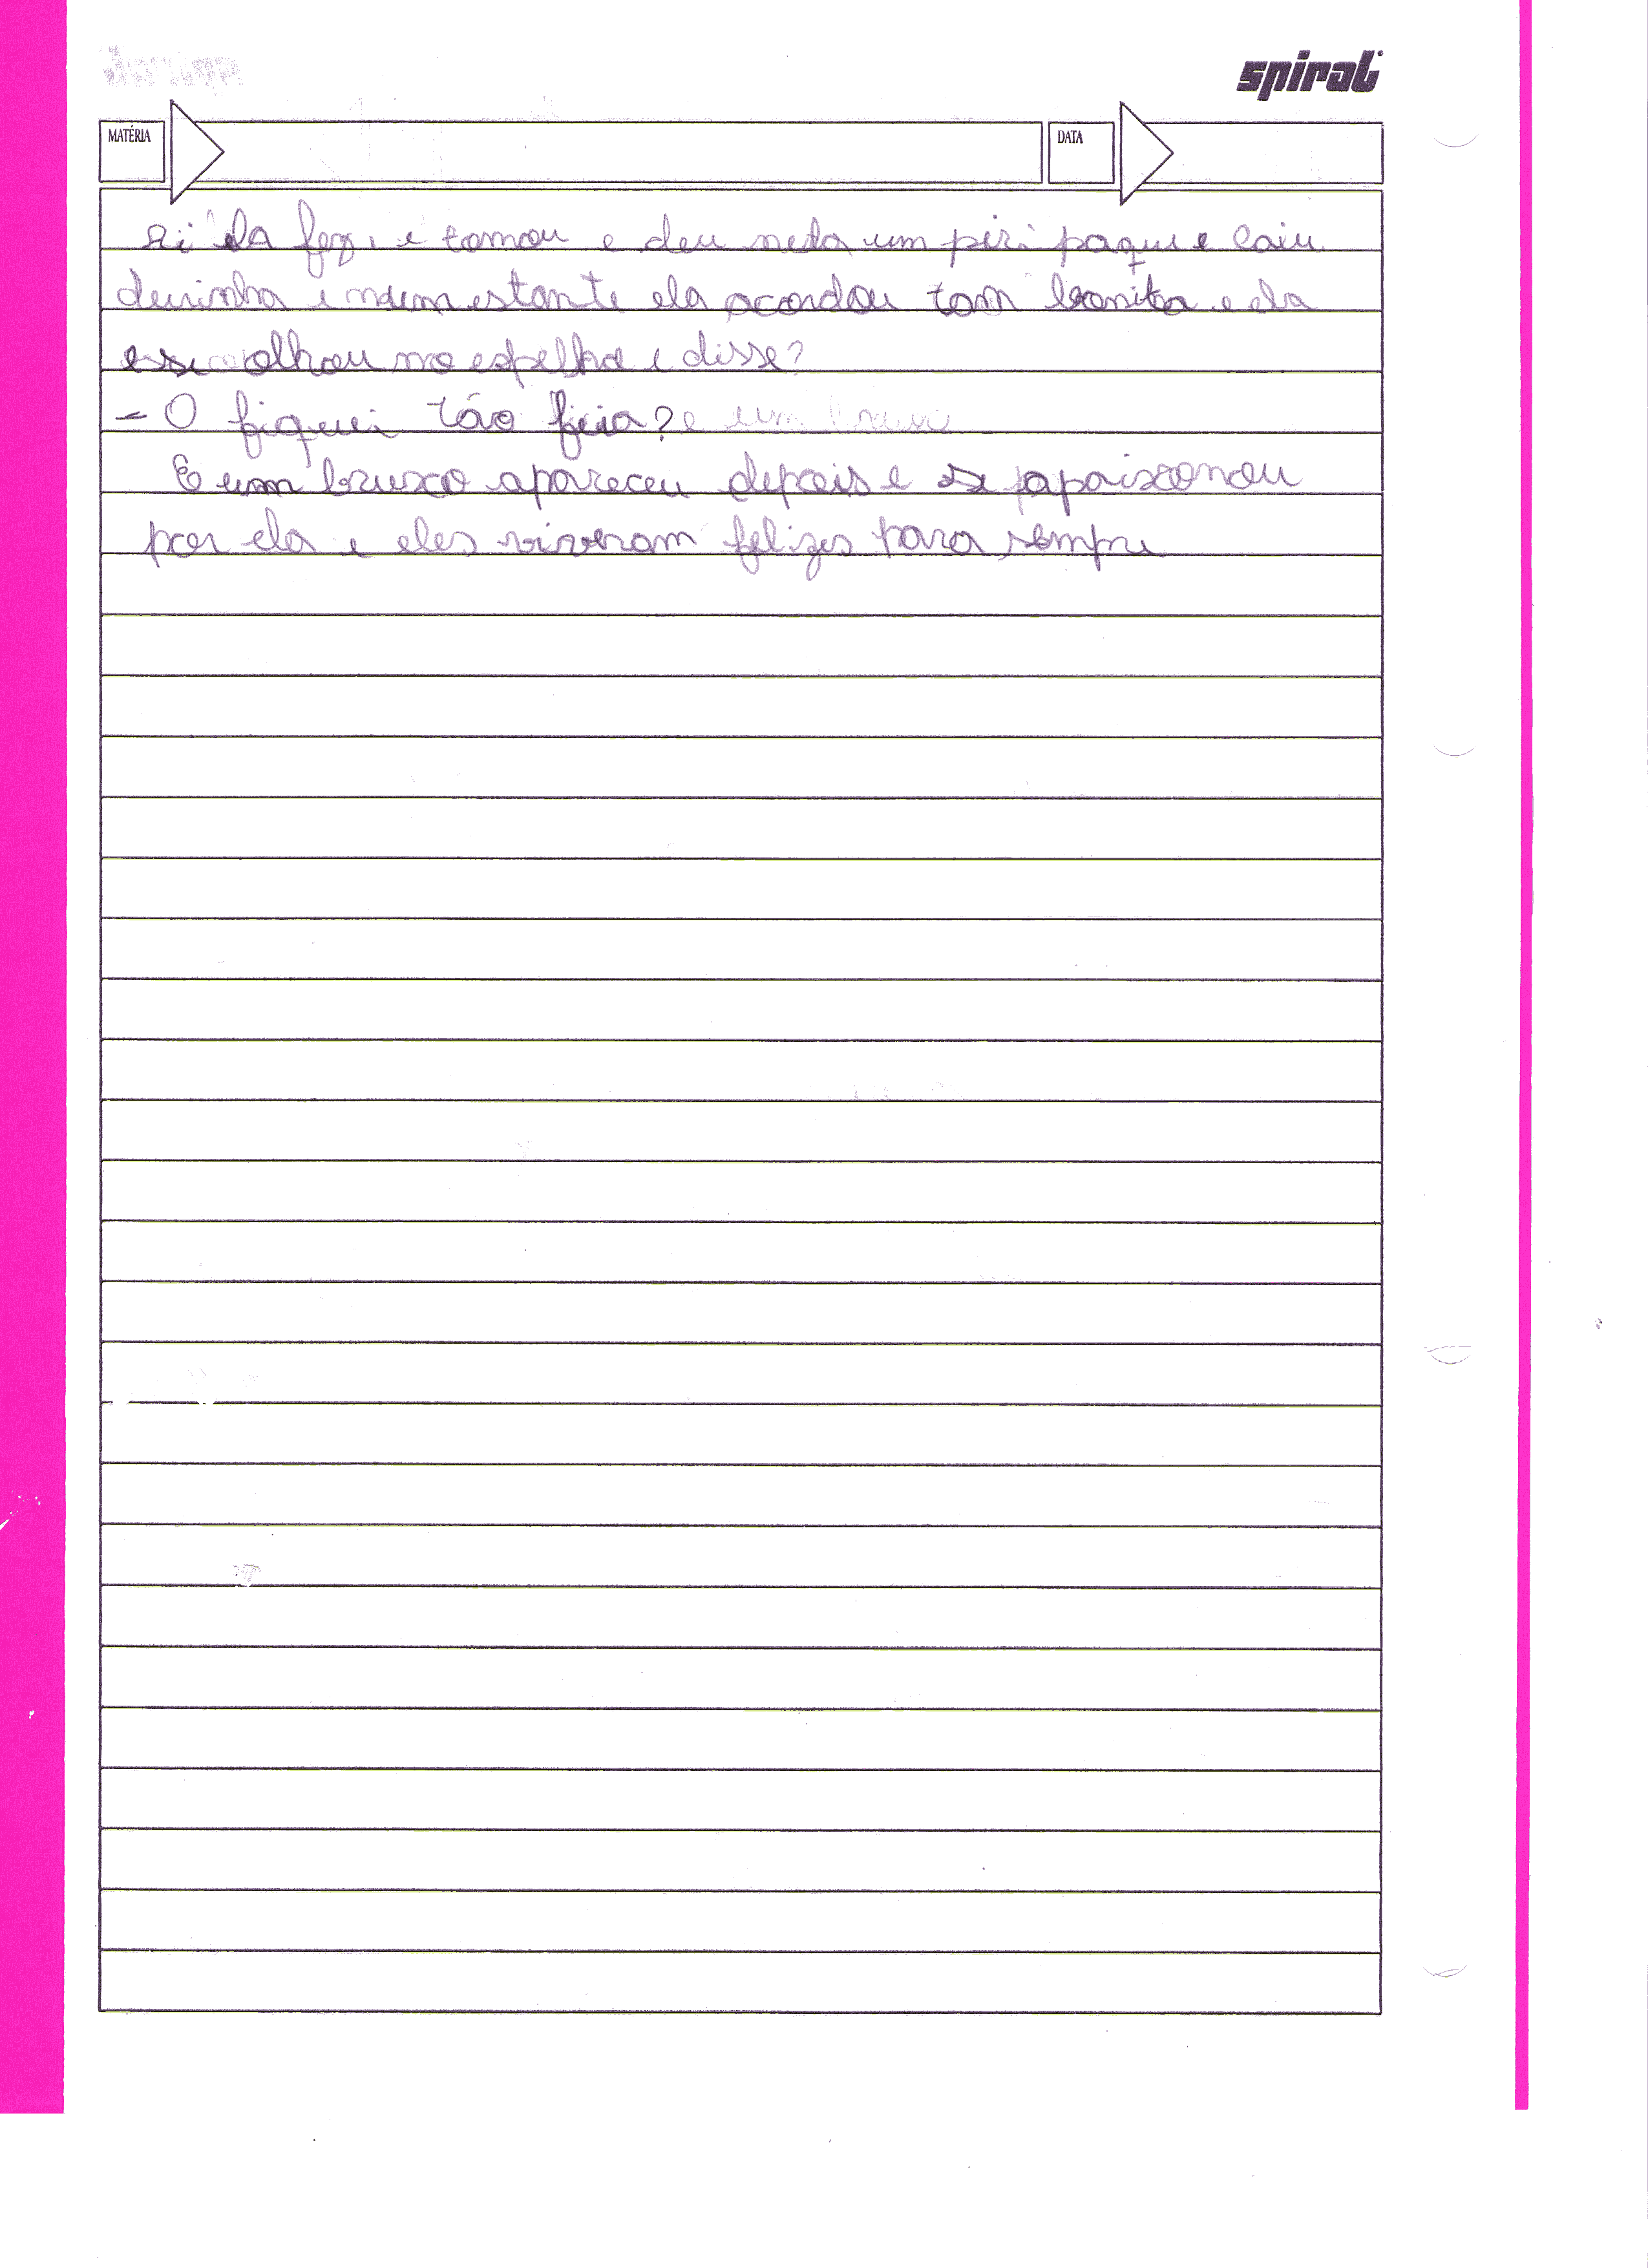 spiral
MATÉRIA DATA
Ai ela fez, e tomou e deu nela um piri paque e caiu
deirinha e num estante ela acordou tam bonita e ela
esse olhou no espelho e disse?
- O fiquei tão feia? e um bruxo
E um bruxo apareceu depois e se apaixonou
por ela e eles viveram felizes para sempre